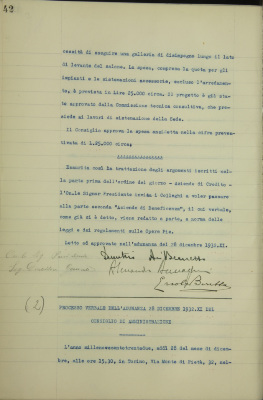 42
cessità di eseguire una galleria di disimpegno lungo il lato
di levante del salone. La spesa, compresa la quota per gli
impianti e la sistemazione accessoria, escluso l'arredamen-
to, è prevista in Lire 25.000 circa. Il progetto è già sta-
to approvato dalla Commissione tecnica consultiva, che pre-
siede ai lavori di sistemazione della Sede.
Il Consiglio approva la spesa suddetta nella cifra preven-
tivata di L.25.000 circa.
Esaurita così la trattazione degli argomenti iscritti nel-
la parte prima dell'ordine del giorno - Azienda di Credito -
l'On.le Signor Presidente invita i Colleghi a voler passare
alla parte seconda "Azienda di Beneficenza", il cui verbale,
come già si è detto, viene redatto a parte, a norma della
Legge e del regolamento sulle Opere Pie.
Letto ed approvato nell'adunanza del 28 dicembre 1932.XI.
(2)
PROCESSO VERBALE DELL'ADUNANZA 28 DICEMBRE 1932.XI DEL
CONSIGLIO DI AMMINISTRAZIONE
L'anno millenovecentotrentadue, addì 28 del mese di dicem-
bre, alle ore 15,30, in Torino, Via Monte di Pietà, 32, nel-